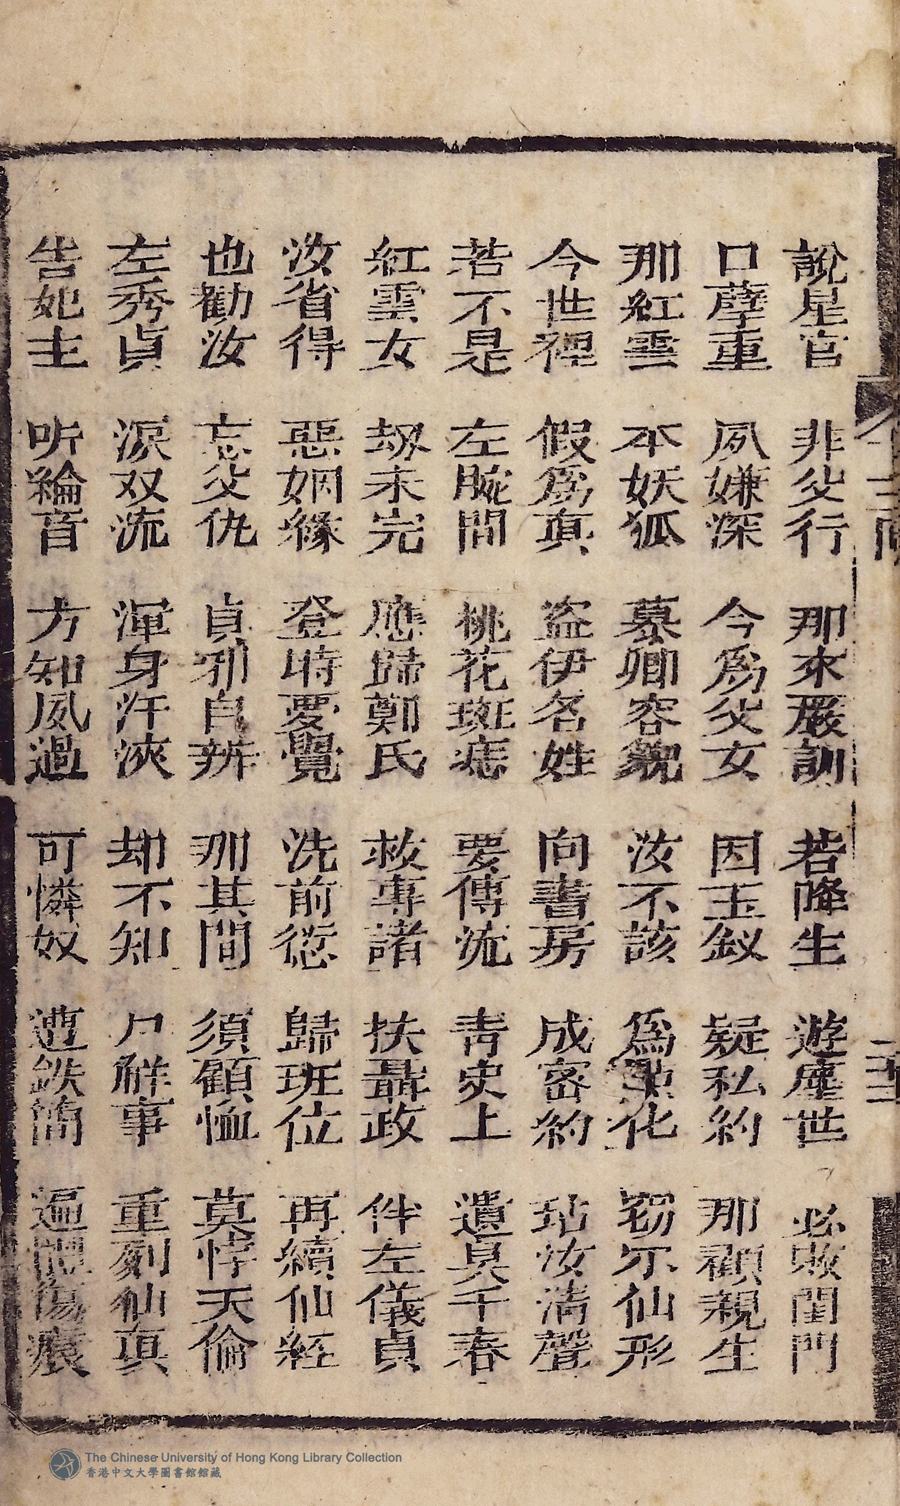 說星官 非父行 那來嚴訓 若降生 遊塵世 必敗閨門
口孽重 夙嫌深 今為父女 因玉釵 疑私約 那顧親生
那紅雲 本妖狐 慕卿容貌 汝不該 為點化 窃尓仙形
今世裡 假為真 盜伊名姓 向書房 成密約 玷汝清聲
若不是 左腕間 桃花斑痣 要傳流 青史上 遺臭千春
紅雲女 刼未完 應歸鄭氏 救專諸 扶聶政 伴左儀貞
汝省得 惡姻緣 登時要覺 洗前愆 歸班位 再續仙経
也勸汝 忘父仇 貞邪自辨 那其間 須顧恤 莫悖天倫
左秀貞 淚双流 渾身汗浹 却不知 尸觧事 重列仙真
告妃主 听綸音 方知夙過 可憐奴 遭鉄簡 遍體傷痕
二十二
The Chinese University of Hong Kong Library Collection
香港中文大學圖書館館藏